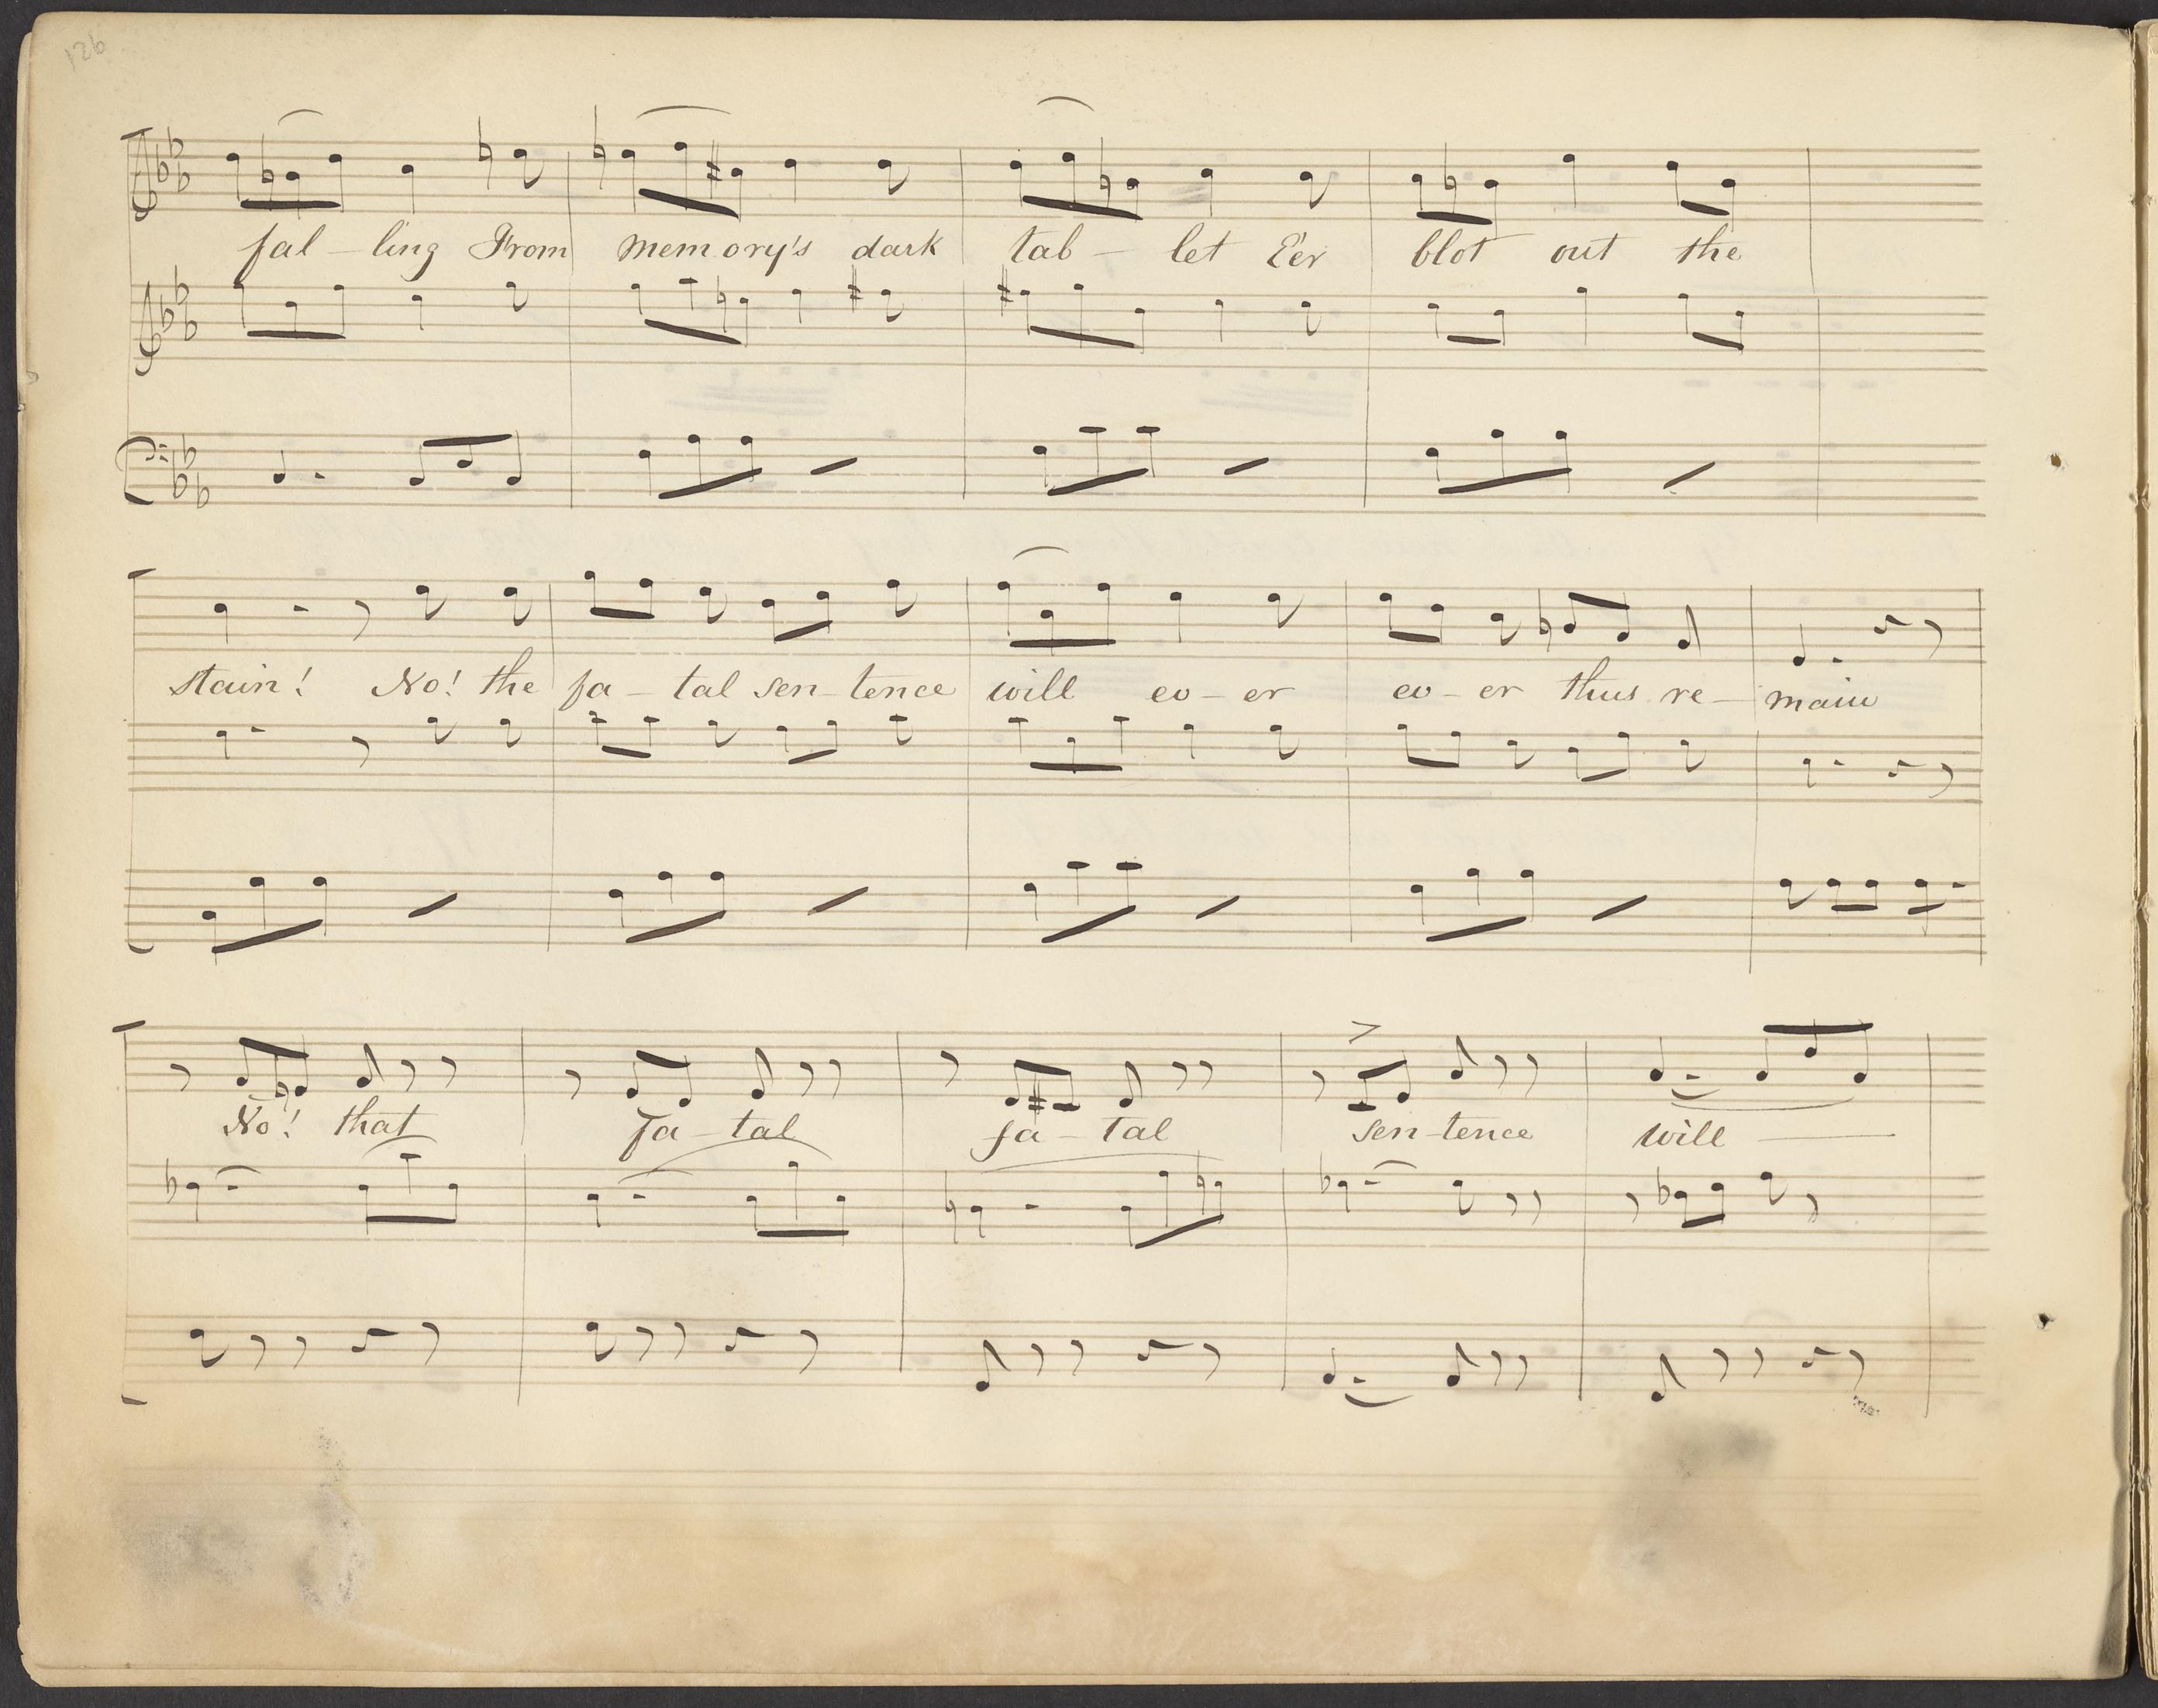 126
fal - ling From mem ory's dark tab - let E'er blot out the
stain! No! the fa - tal sen - tence will ev - er ev - er thus re - main
No! that fa - tal fa - tal sen - tence will